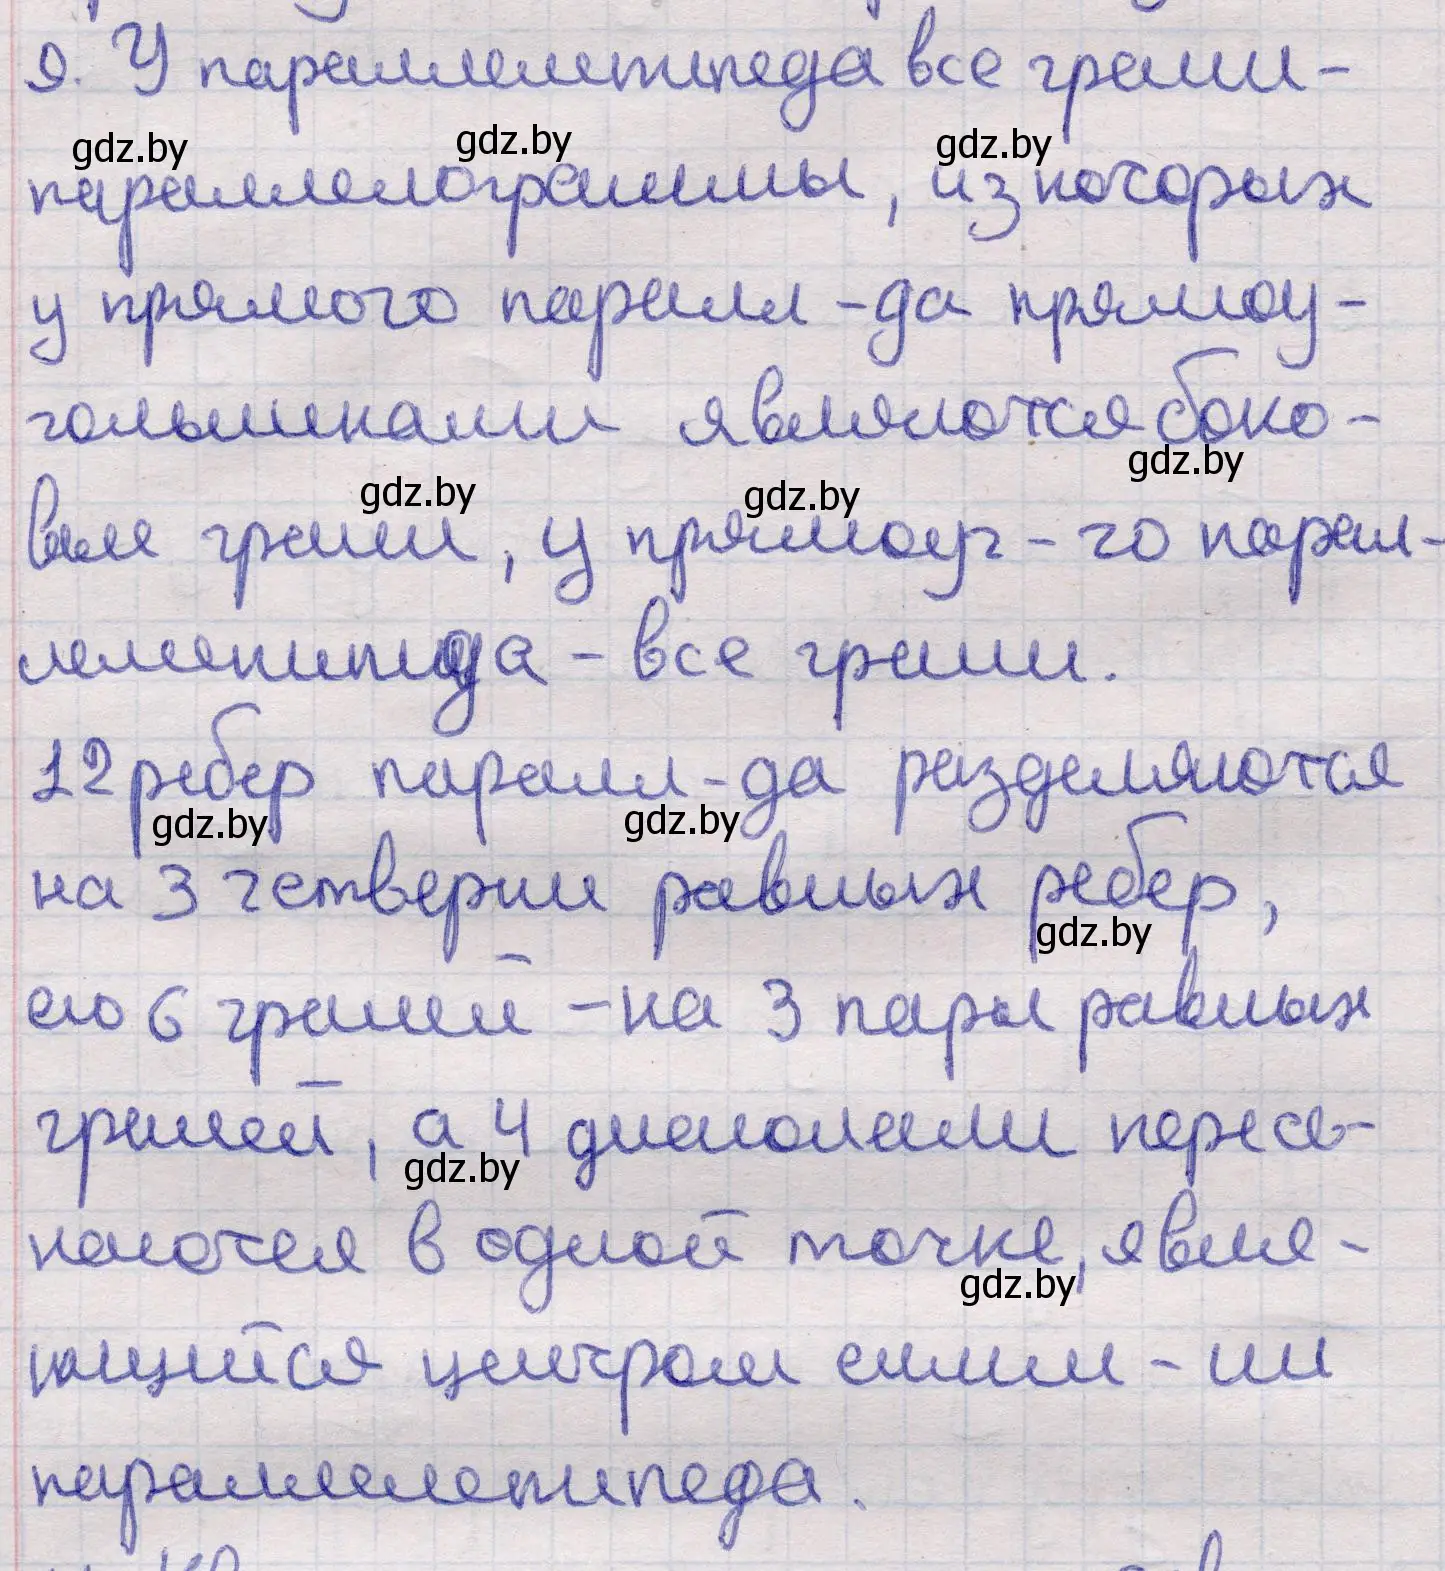 9. У параллелепипеда все грани -
gdz.by gdz.by gdz.by
параллелограммы, из которых
у прямого паралл-да прямоу-
гольниками являются боко-
gdz.by gdz.by gdz.by
вые грани, у прямоуг-го парал-
лелепипеда - все грани.
12 ребер паралл-да разделяются
gdz.by gdz.by
на 3 четверки равных ребер,
gdz.by
его 6 граней - на 3 пары равных
граней, а 4 диагонали пересе-
gdz.by
каются в одной точке, явля-
gdz.by
ющейся центром симм-ии
параллелепипеда.